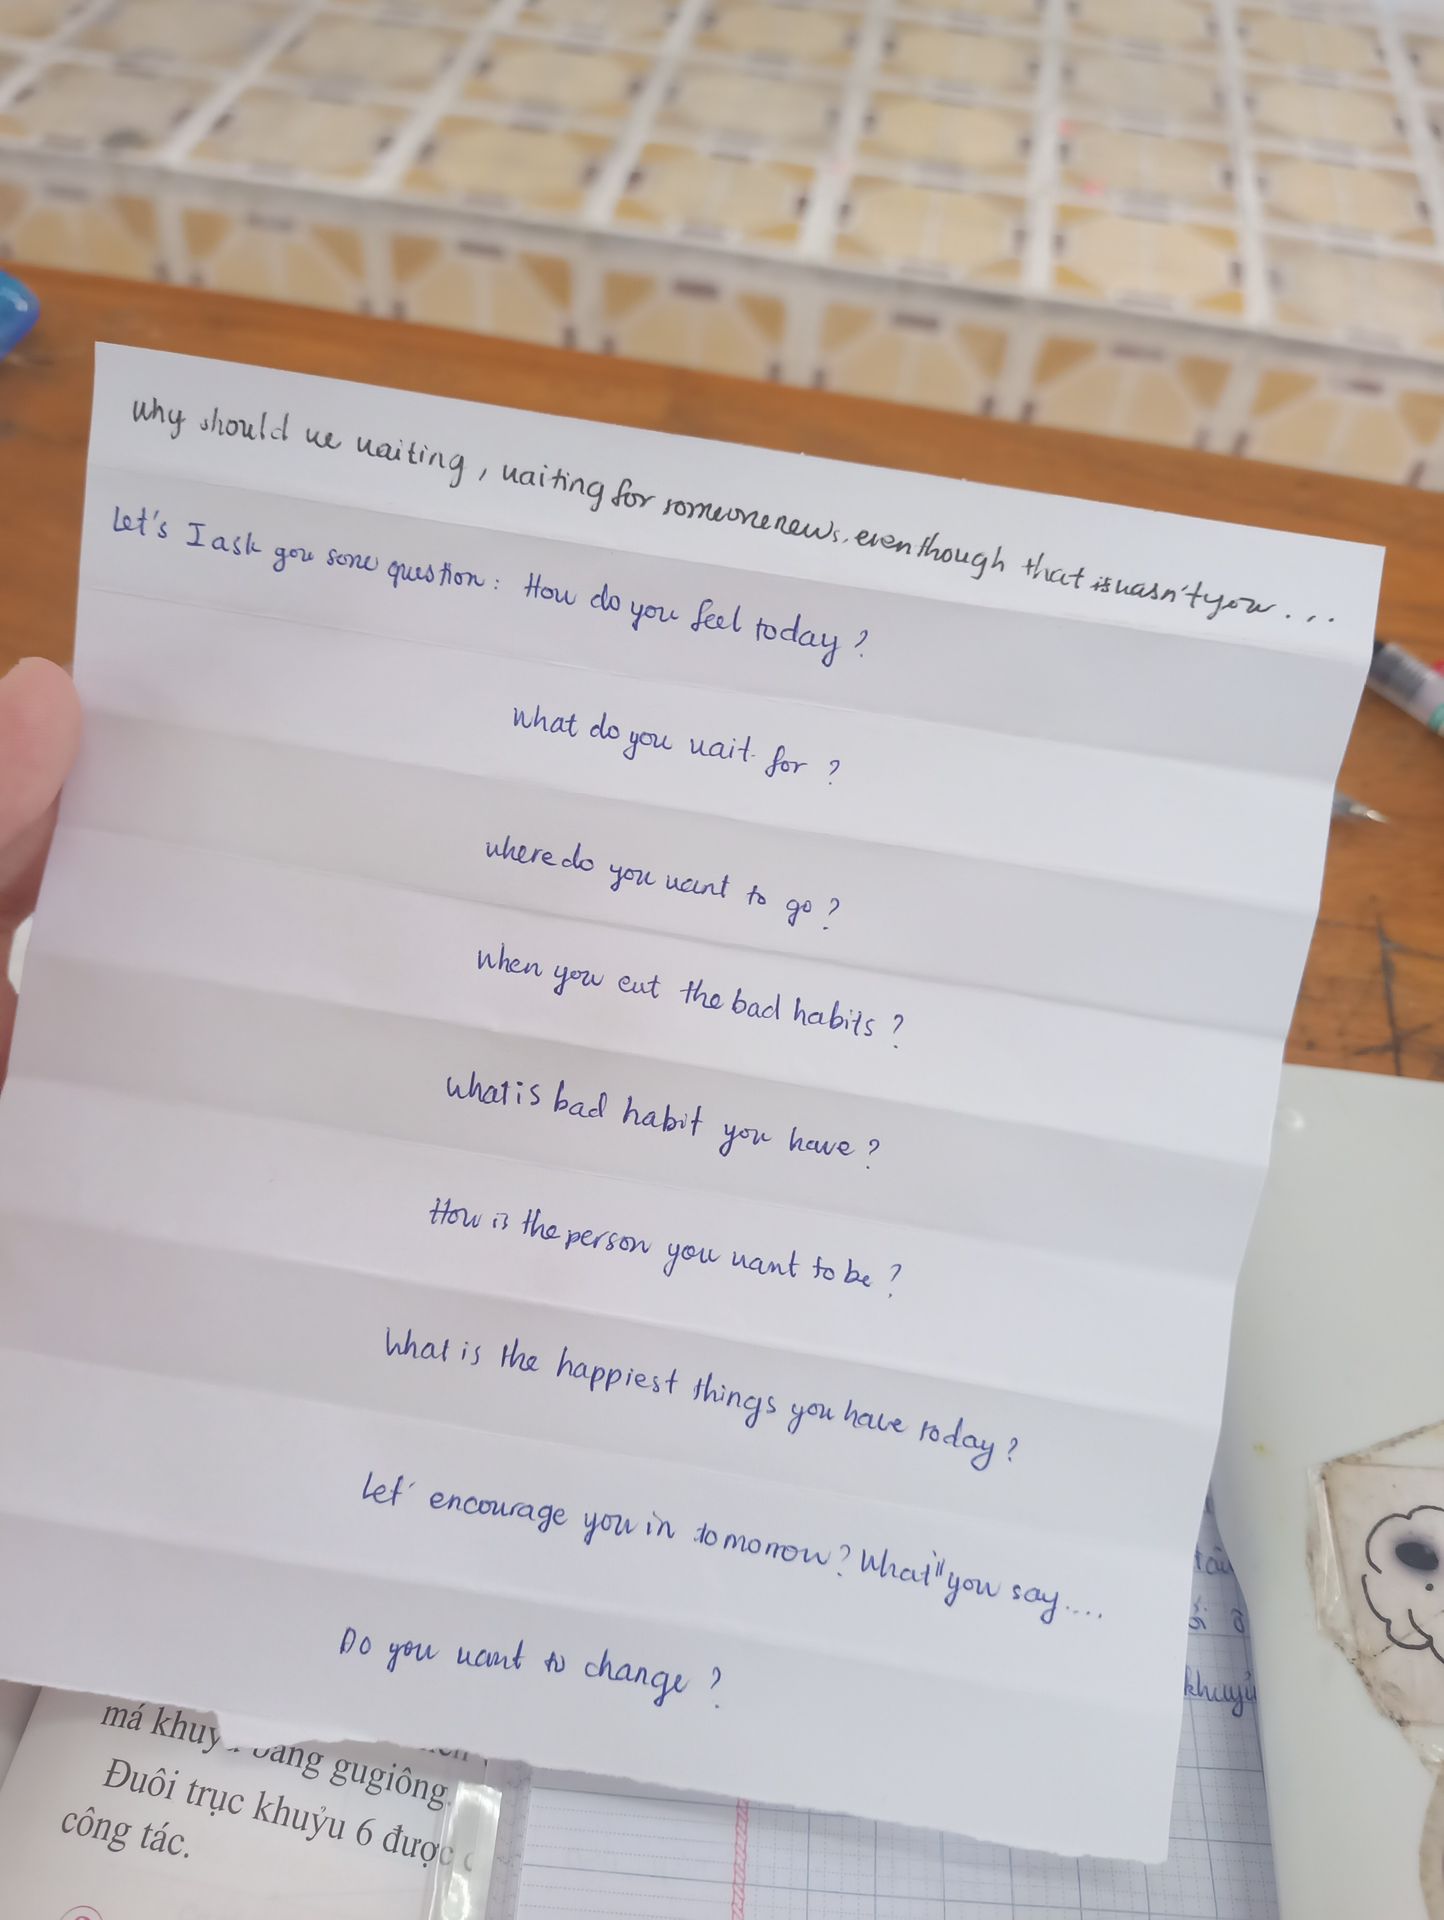 Why should we waiting, waiting for someone news, even though that is wasn't you...
Let's I ask you some question: How do you feel today?
What do you wait for?
where do you want to go?
When you cut the bad habits?
What is bad habit you have?
How is the person you want to be?
What is the happiest things you have today?
Let' encourage you in tomorrow? What'll you say....
Do you want to change?
má khuỷ bằng gugiông.
Đuôi trục khuỷu 6 được
công tác.
khuỷu